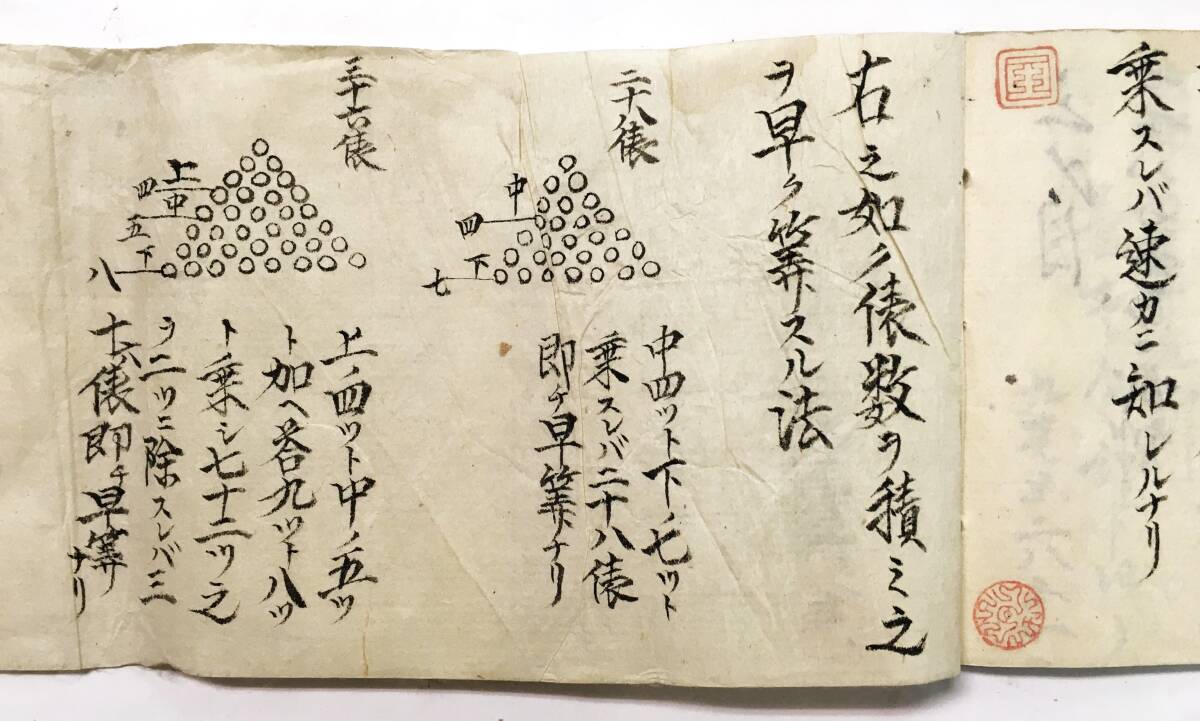 乗スレバ速カニ知レルナリ
右之如ク俵数ヲ積ミ之
ヲ早ク筭スル法
二十八俵
中
四
下
七
中四ツト下ノ七ツト
乗スレバ二十八俵
即チ早筭ナリ
三十六俵
上
四
中
五
下
八
上ノ四ツト中ノ五ツ
ト加ヘ答九ツト八ツ
ト乗シ七十二ツ之
ヲ二ツニ除スレバ三
十六俵即チ早筭
ナリ